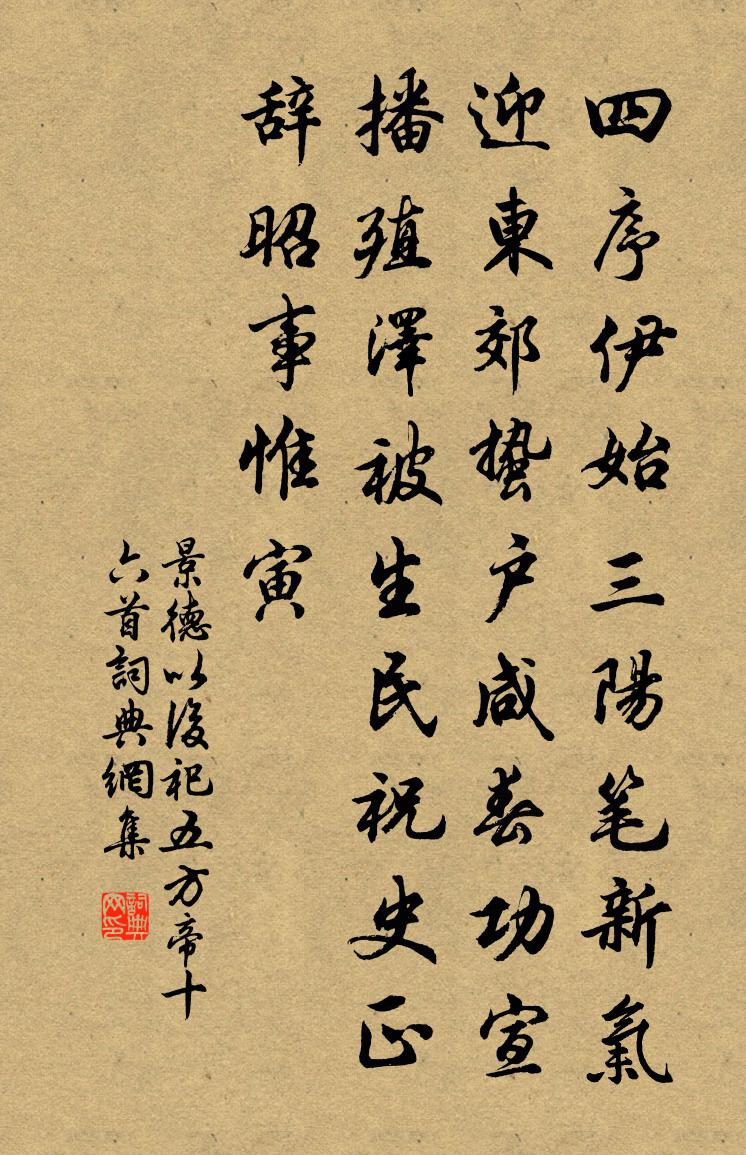 四序伊始三陽笔新氣
迎東郊蛰户咸春功宣
播殖澤被生民祝史正
辞昭事惟寅
景德以後祀五方帝十
六首詞典網集
詞典网印